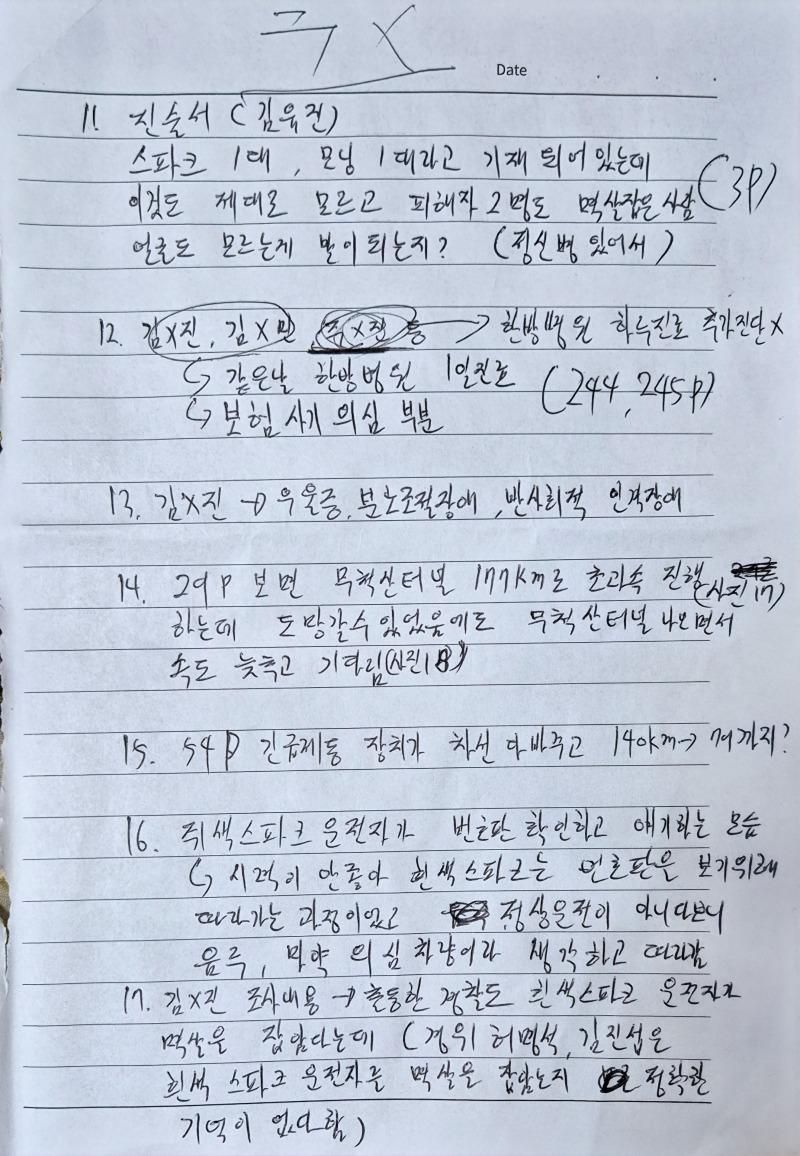 주X
Date
11. 진술서 (김유진)
스파크 1대, 모닝 1대라고 기재 되어 있는데
이것도 제대로 모르고 피해자 2명도 멱살잡은 사람 (3P)
얼굴도 모르는게 말이 되는지? (정신병 있어서)
12. 김X진, 김X민 주X진 등 → 한방병원 하루진료 추가진단 X
↳ 같은날 한방병원 1일진료 (244, 245P)
↳ 보험사기 의심 부분
13. 김X진 → 우울증, 분노조절장애, 반사회적 인격장애
14. 29P 보면 무척산터널 177km로 초과속 진행 (사진 17)
하는데 도망갈수 있었음에도 무척산터널 나오면서
속도 늦추고 기다림 (사진18)
15. 54P 긴급제동 장치가 차선 다바꾸고 140km→ 까지?
16. 쥐색스파크 운전자가 번호판 확인하고 얘기하는 모습
↳ 시력이 안좋아 흰색스파크는 번호판을 보기위해
따라가는 과정이었고 정상운전이 아니다보니
음주, 마약 의심 차량이라 생각하고 따라감
17. 김X진 조사내용 → 출동한 경찰도 흰색스파크 운전자가
멱살을 잡았다는데 (경위 허명석, 김진섭은
흰색 스파크 운전자를 멱살을 잡았는지 정확한
기억이 없다함)